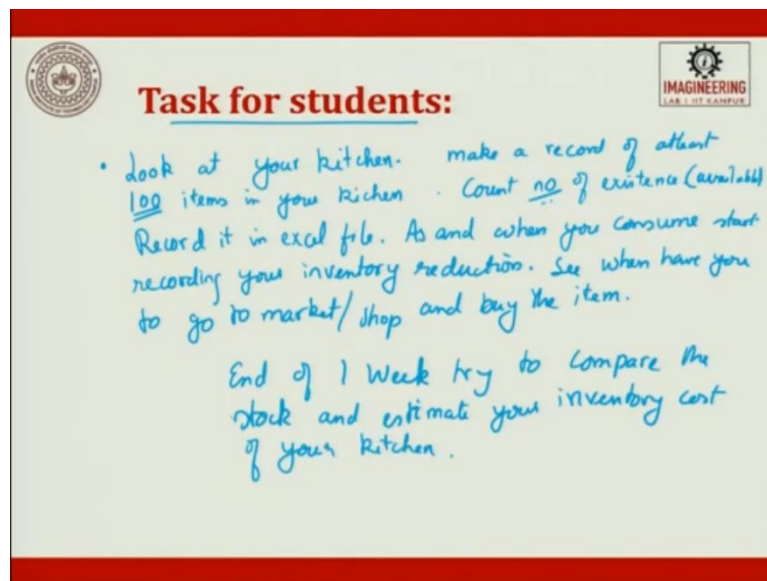 IMAGINEERING
LAB | IIT KANPUR
Task for students:
• Look at your kitchen. make a record of atleast
100 items in your kichen. Count no of existence (available)
Record it in excel file. As and when you consume start
recording your inventory reduction. See when have you
to go to market/shop and buy the item.
End of 1 Week try to compare the
stock and estimate your inventory cost
of your kitchen.